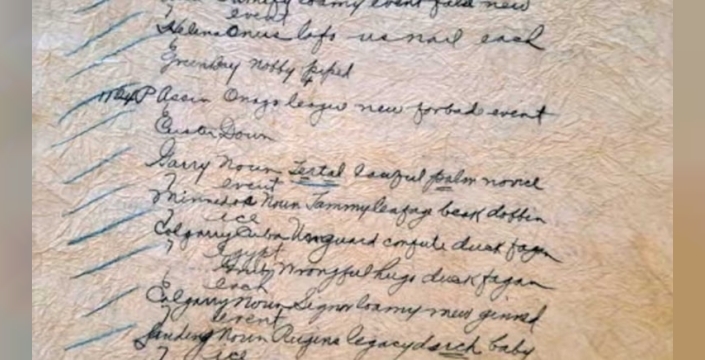 loamy event fald new
event
Helena Onus lofo us nail each
Greenbay nobby piped
Assin Onago league new forbad event
Custer Down
Garry Noun Tertal lawful palm novice
event
Minnedos Noun Jammyleafage beak dobbin
ice
Calgarry Cuba Unguard confute duck fagan
Egypt
Wrongful hugs duck fagan
each
Calgarry Noun Signor loamy new ginned
event
Landing Noun Rugins legacy duch baby
ice